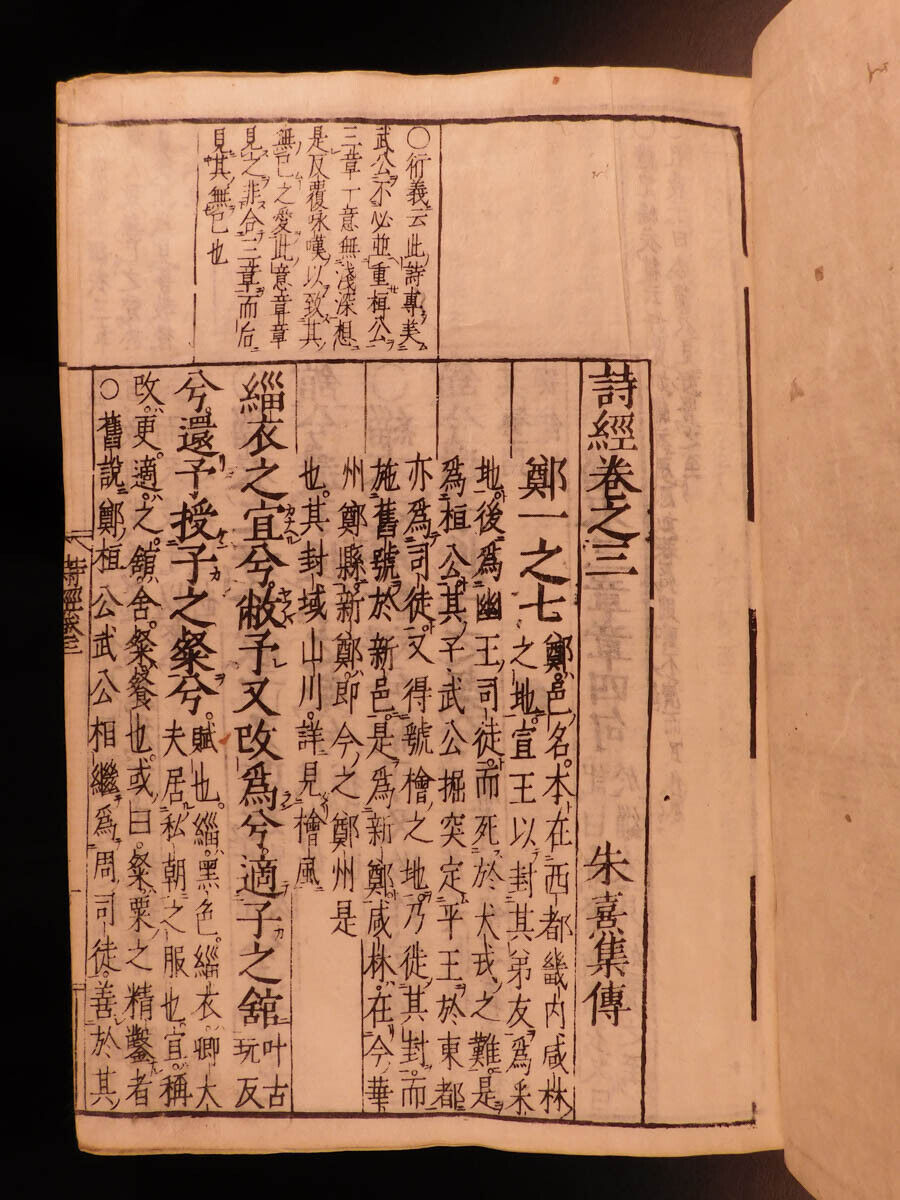 ○衍義云此詩專美
武公不必並重桓公
三章丁意無淺深想
是反覆咏嘆以致其
無已之愛此意章章
見之非合三章而后
見其無已也
詩經卷之三 朱熹集傳
鄭一之七 鄭邑名本在西都畿內咸林
之地宣王以封其弟友爲采
地後爲幽王司徒而死於犬戎之難是
爲桓公其子武公掘突定平王於東都
亦爲司徒又得號檜之地乃徙其封而
施舊號於新邑是爲新鄭咸林在今華
州鄭縣新鄭即今之鄭州是
也其封域山川詳見檜風
緇衣之宜兮敝予又改爲兮適子之舘叶古
玩反
兮還予授子之粲兮賦也緇黑色緇衣卿大
夫居私朝之服也宜稱
改更適之舘舍粲餐也或曰粲粟之精鑿者
○舊說鄭桓公武公相繼爲周司徒善於其
詩經卷三